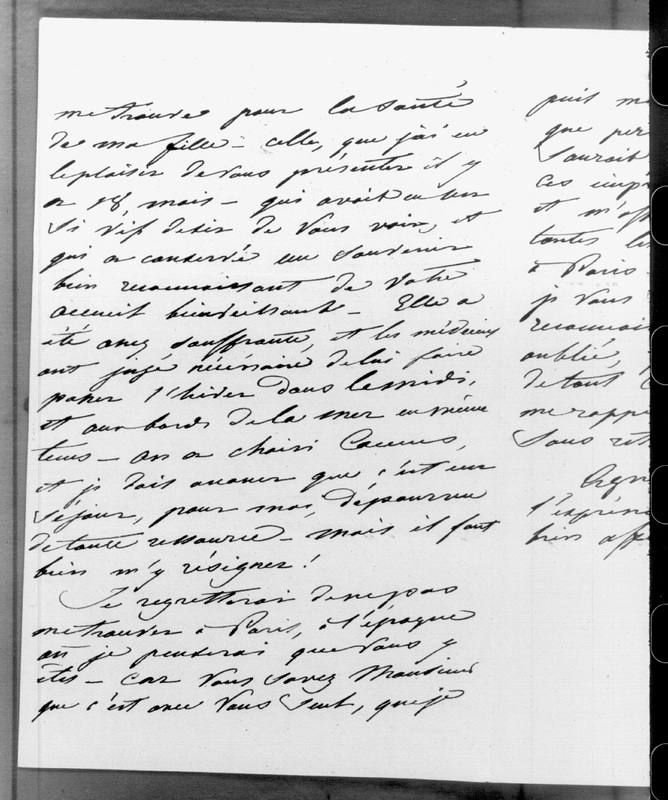 me trouve pour la santé
de ma fille - celle, que j'ai eu
le plaisir de vous présenter il y
a 18 mois - qui avait eu un
si vif desir de vous voir, et
qui a conservé un souvenir
bien reconnaissant de votre
accueil bienveillant - Elle a
été assez souffrante, et les médecins
ont jugé nécéssaire de lui faire
passer l'hiver dans le midi,
et aux bords de la mer en même
tems - on a choisi Cannes,
et je dois avouer que c'est un
séjour, pour moi, dépourvu
de toute ressource - mais il faut
bien m'y résigner!
Je regretterai de ne pas
me trouver à Paris, à l'époque
où je penserai que vous y
êtes - car vous savez Monsieur
que c'est avec vous seul, que je
puis m
que per
Saurait
ces imp
et m'off
toutes les
à Paris -
je vous
reconnais
oublié,
de tout
me rappe
Sans ret
Agré
l'expre
bien affe